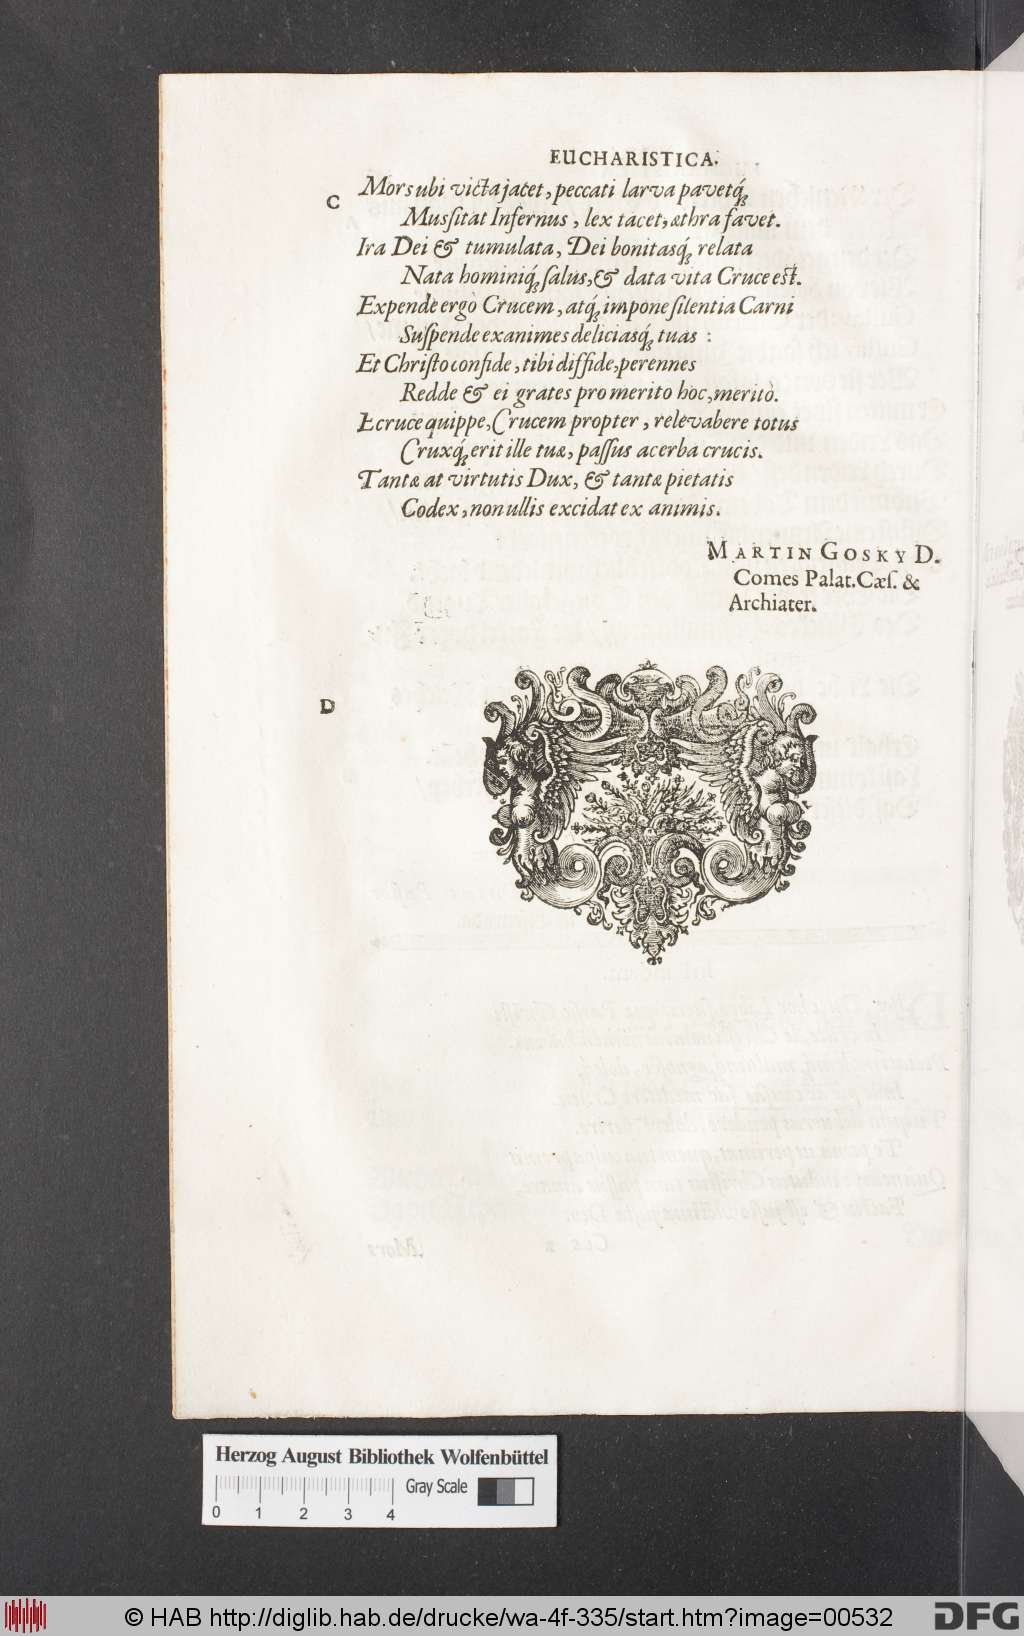 EUCHARISTICA.
C
Mors ubi victa jacet, peccati larva pavetq́ꝫ
Musſitat Infernus, lex tacet, æthra favet.
Ira Dei & tumulata, Dei bonitasq́ꝫ relata
Nata hominiq́ꝫ ſalus, & data vita Cruce eſt.
Expende ergò Crucem, atq́ꝫ impone ſilentia Carni
Suſpende exanimes deliciasq́ꝫ tuas :
Et Chriſto confide, tibi diffide, perennes
Redde & ei grates pro merito hoc, meritò.
E cruce quippe, Crucem propter, relevabere totus
Cruxq́ꝫ erit ille tuæ, paſſus acerba crucis.
Tantæ at virtutis Dux, & tantæ pietatis
Codex, non ullis excidat ex animis.
MARTIN GOSKY D.
Comes Palat. Cæſ. &
Archiater.
D
Herzog August Bibliothek Wolfenbüttel
Gray Scale
0 1 2 3 4
© HAB http://diglib.hab.de/drucke/wa-4f-335/start.htm?image=00532
DFG